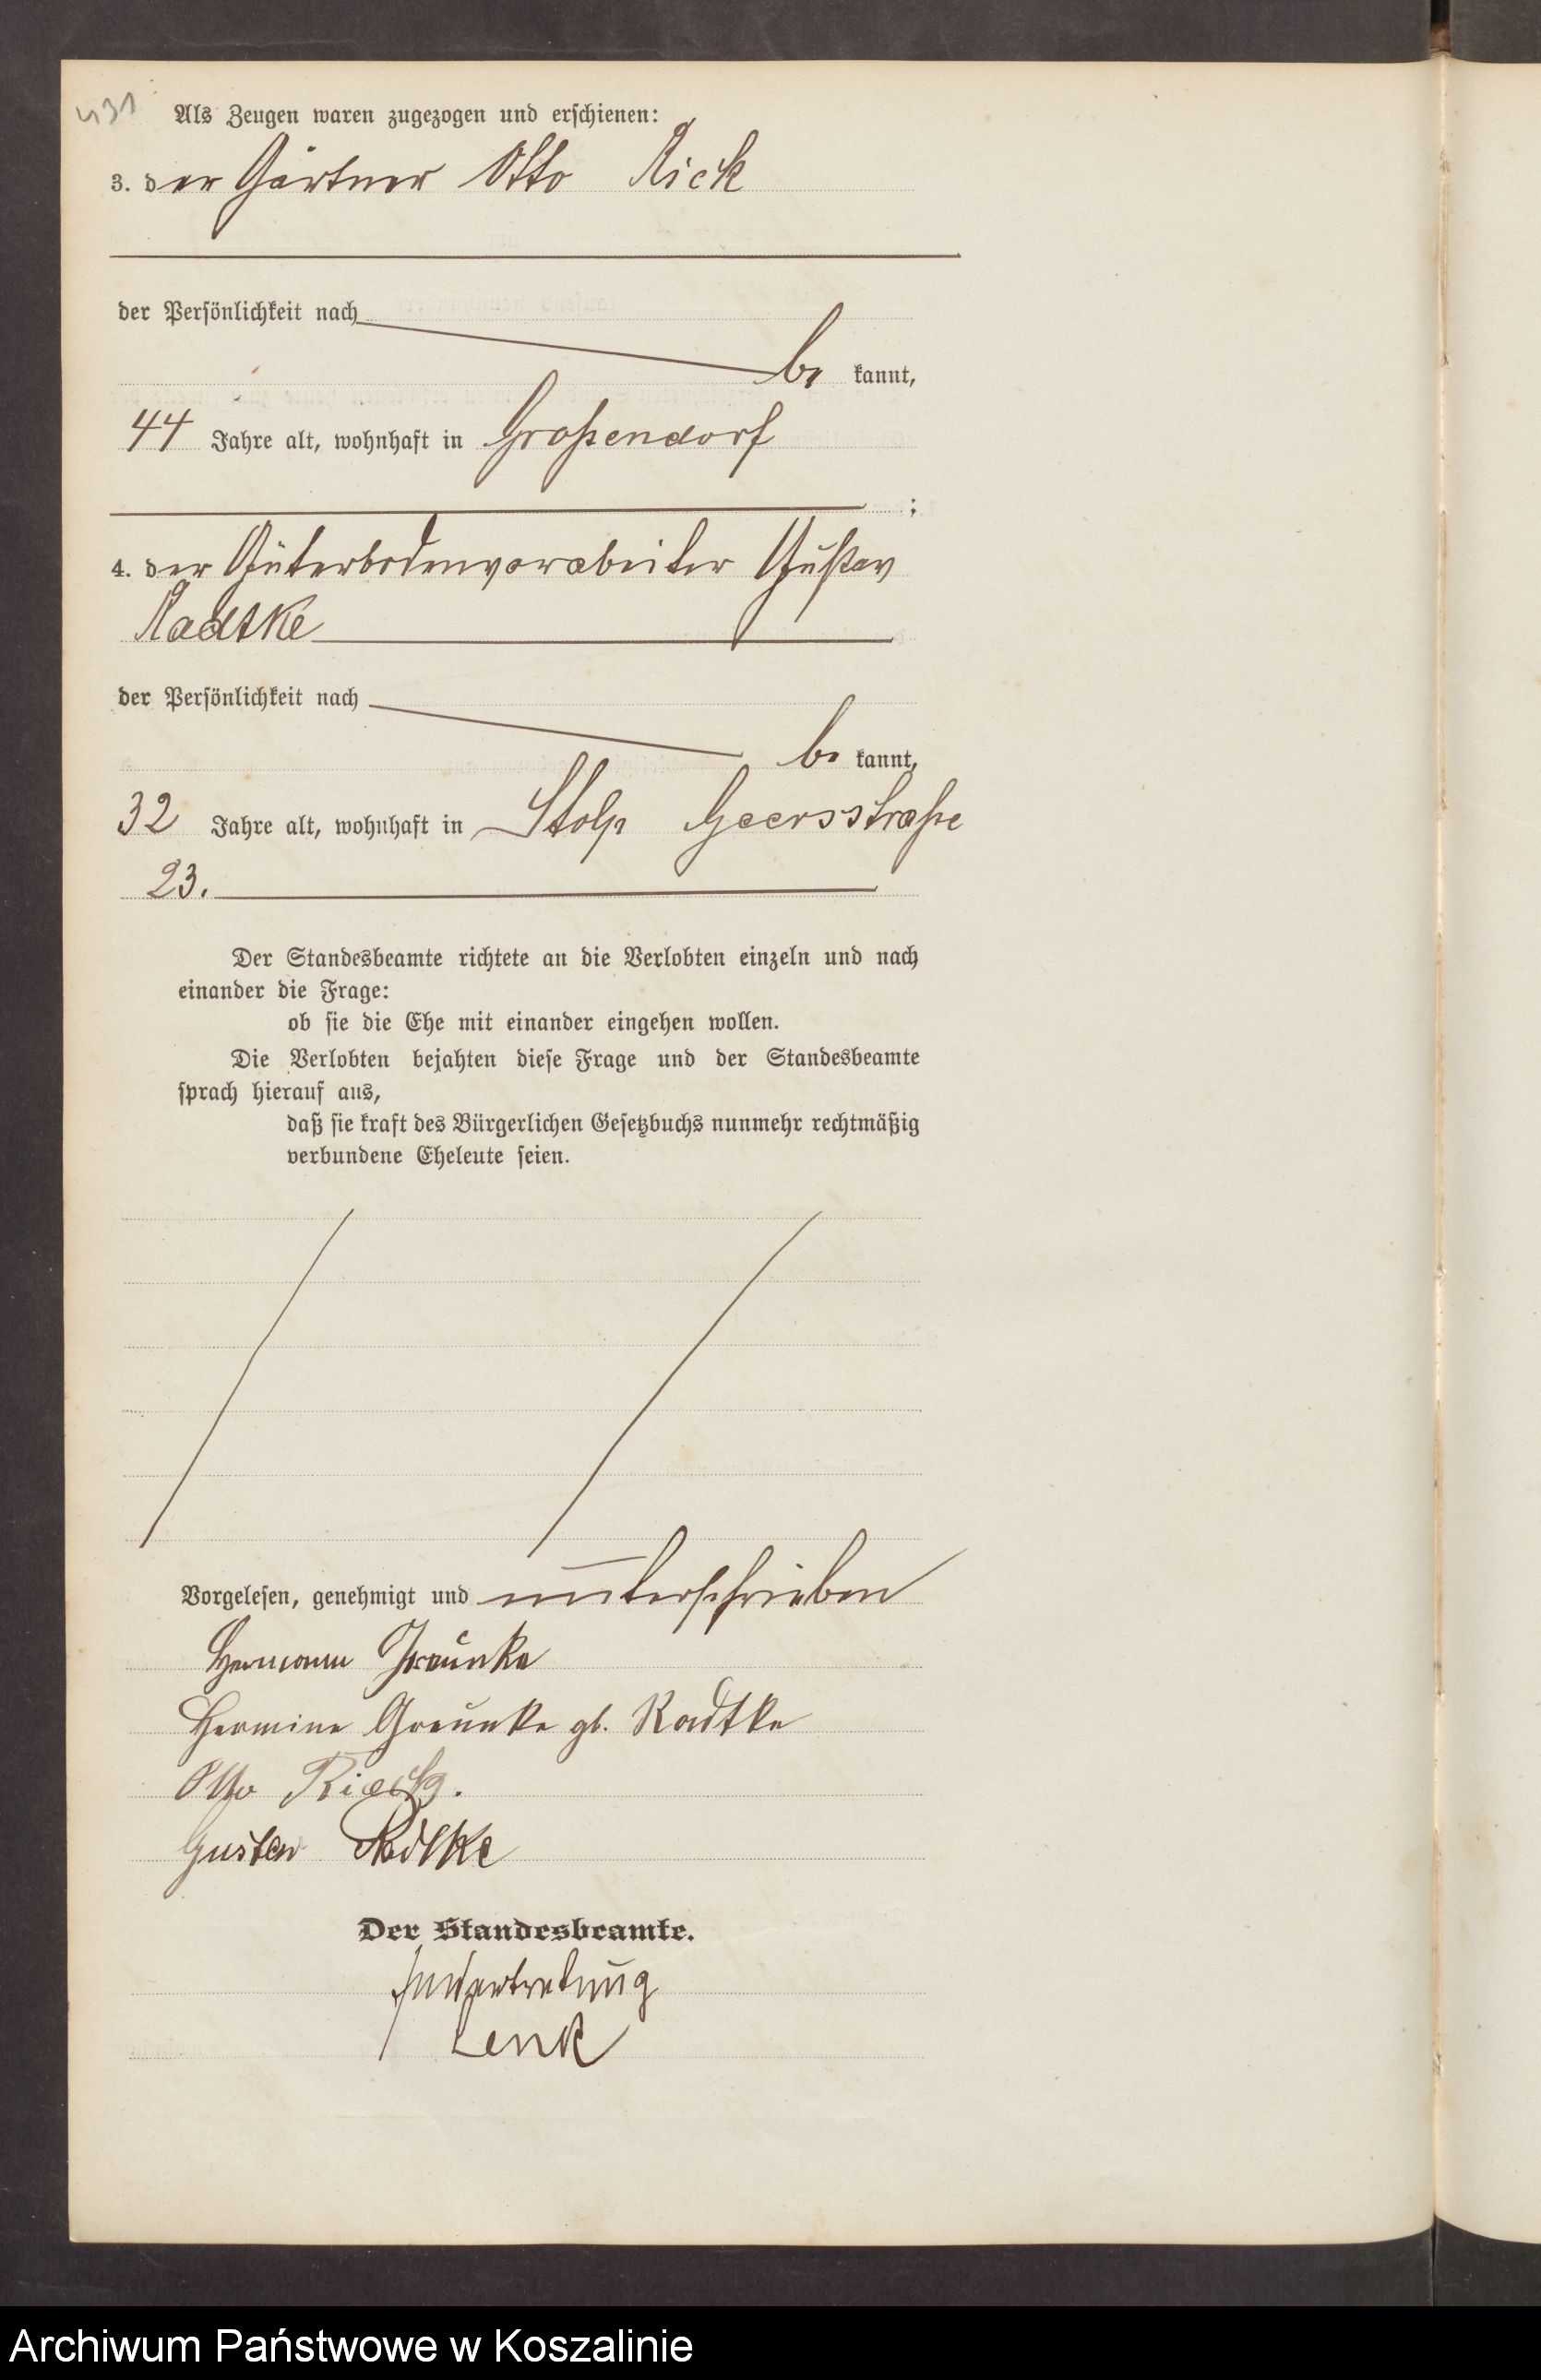 431
Als Zeugen waren zugezogen und erschienen:
3. der Gärtner Otto Rick
der Persönlichkeit nach
be kannt,
44 Jahre alt, wohnhaft in Großendorf
;
4. der Güterbodenvorarbeiter Gustav
Radtke
der Persönlichkeit nach
be kannt,
32 Jahre alt, wohnhaft in Stolp Geersstraße
23.
Der Standesbeamte richtete an die Verlobten einzeln und nach
einander die Frage:
ob sie die Ehe mit einander eingehen wollen.
Die Verlobten bejahten diese Frage und der Standesbeamte
sprach hierauf aus,
daß sie kraft des Bürgerlichen Gesetzbuchs nunmehr rechtmäßig
verbundene Eheleute seien.
Vorgelesen, genehmigt und unterschrieben
Hermann Greunke
Hermine Greunke gb. Radtke
Otto Rieck.
Gustav Radtke
Der Standesbeamte.
In Vertretung
Lenk
Archiwum Państwowe w Koszalinie